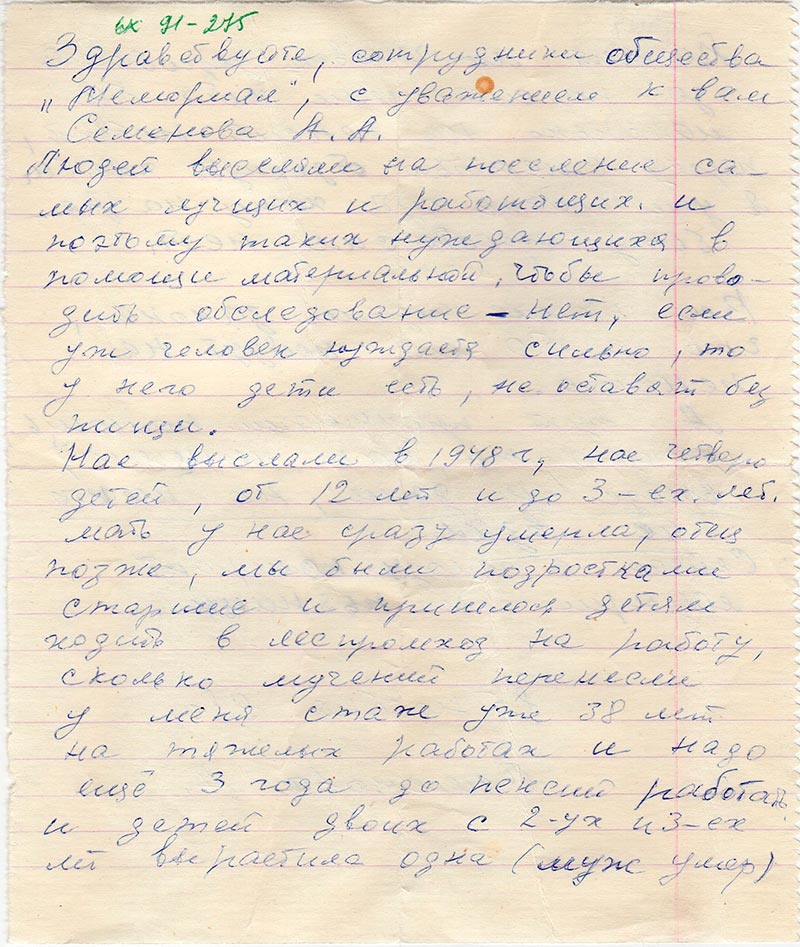 вх 91-275
Здравствуйте, сотрудники общества
„Мемориал", с уважением к вам
Семенова А. А.
Людей выселяли на поселение са-
мых лучших и работящих. и
поэтому таких нуждающихся в
помощи материальной, чтобы прово-
дить обследование – нет, если
уж человек нуждается сильно, то
у него дети есть, не оставят без
пищи.
Нас выслали в 1948 г, нас четверо
детей, от 12 лет и до 3-ех лет.
мать у нас сразу умерла, отец
позже, мы были подростками
старшие и пришлось детям
ходить в леспромхоз на работу,
сколько мучений перенесли
у меня стаж уже 38 лет
на тяжелых работах и надо
ещё 3 года до пенсии работать
и детей двоих с 2-ух и 3-ех
лет вырастила одна (муж умер)